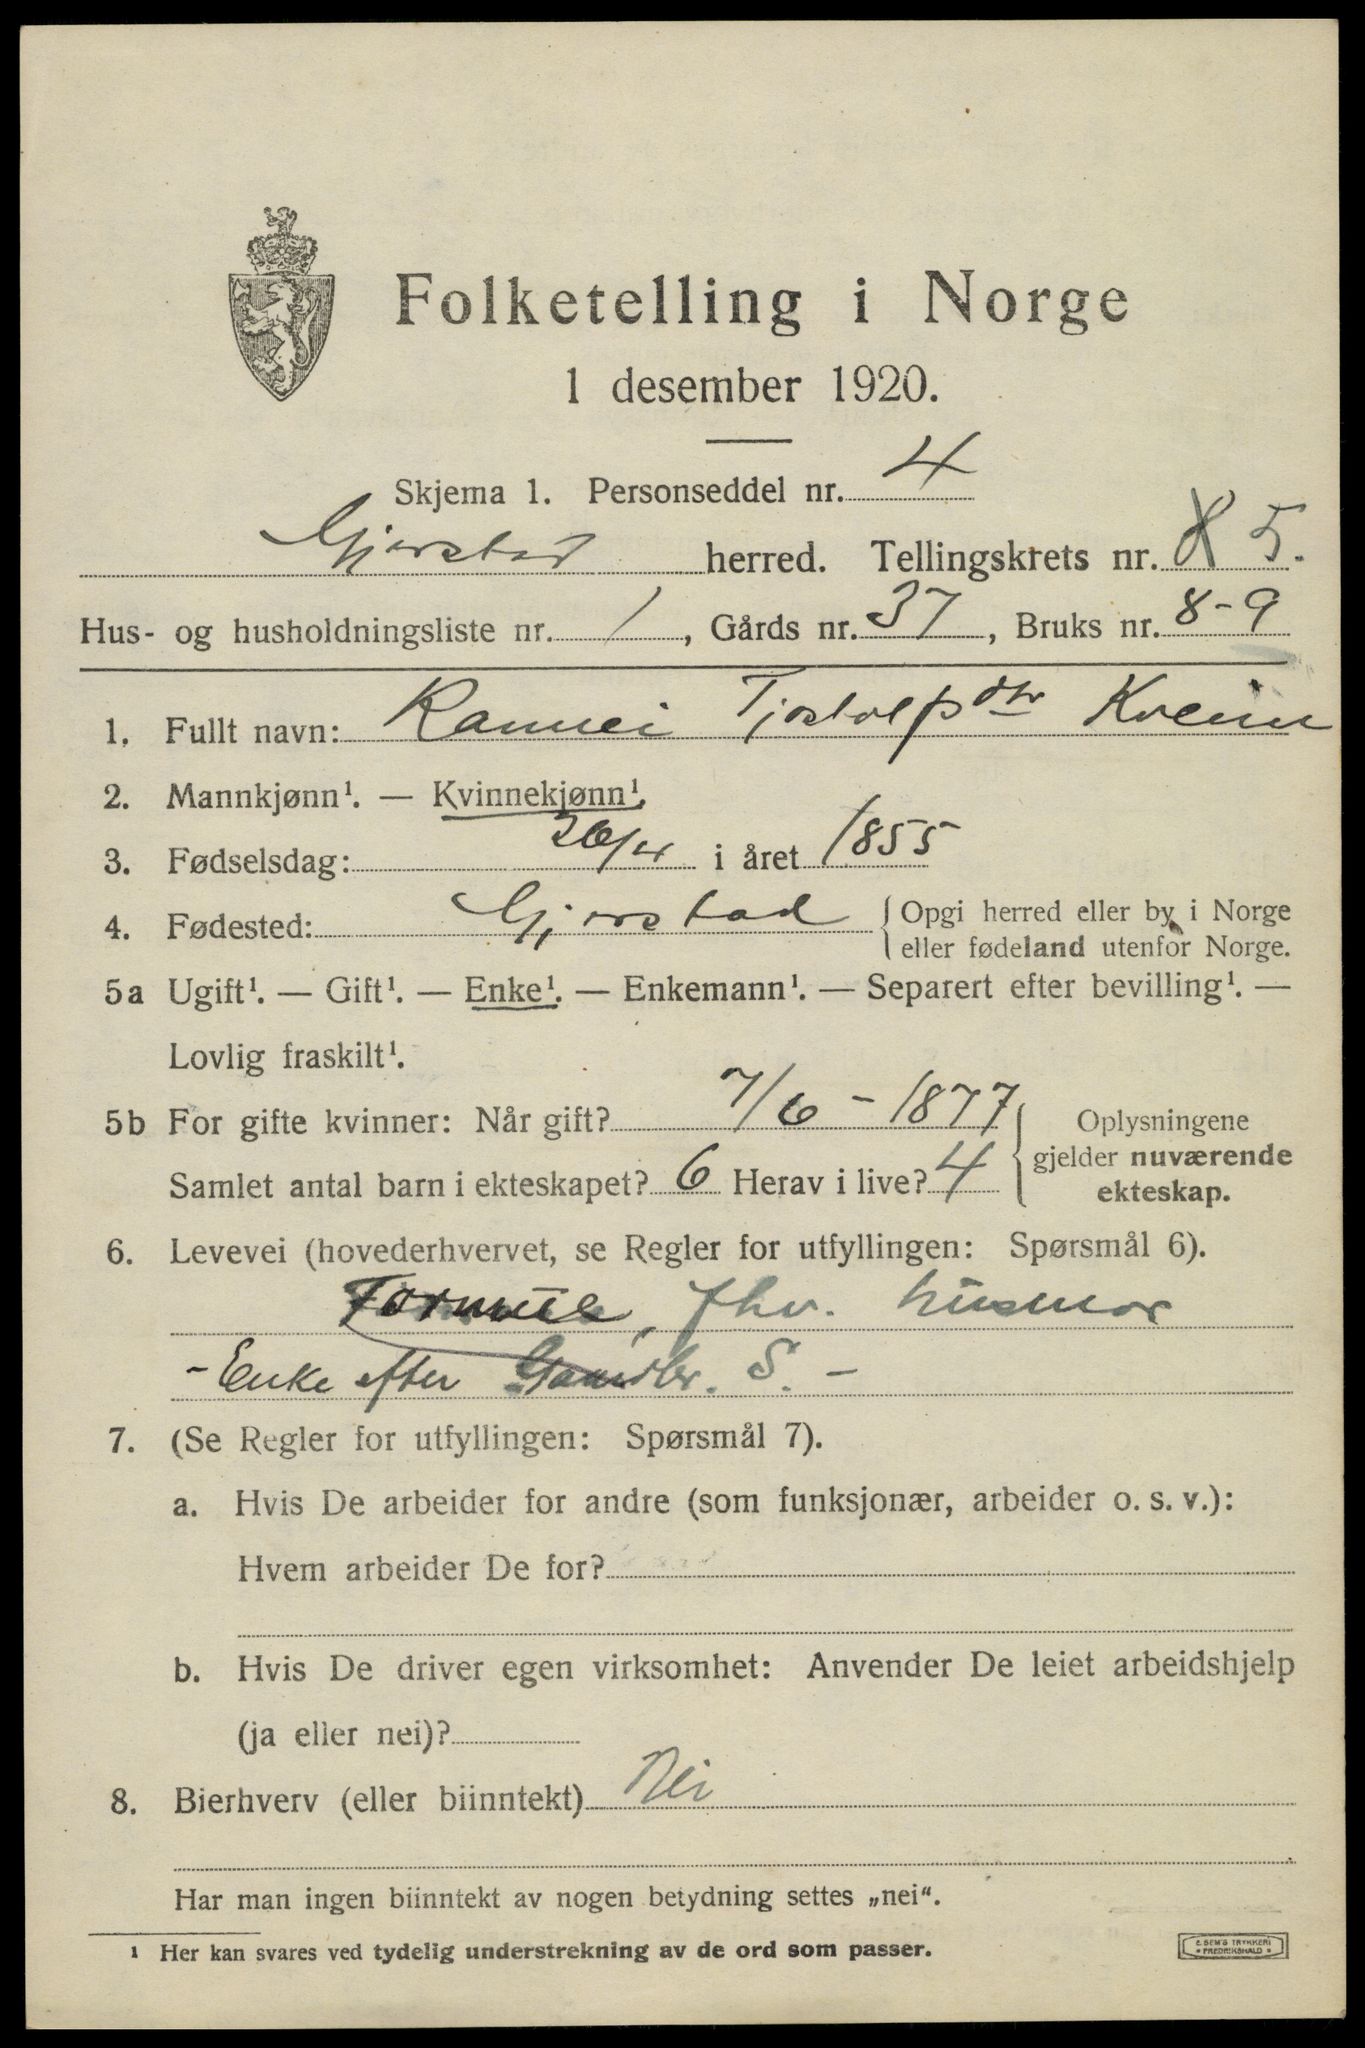 Folketelling i Norge
1 desember 1920.
Skjema 1. Personseddel nr. 4
Gjerstad herred. Tellingskrets nr. 8 5.
Hus- og husholdningsliste nr. 1, Gårds nr. 37, Bruks nr. 8-9
1. Fullt navn: Rannei Tjostolfsdtr Kveim
2. Mannkjønn¹. — Kvinnekjønn¹.
3. Fødselsdag: 26/4 i året 1855
4. Fødested: Gjerstad {Opgi herred eller by i Norge
eller fødeland utenfor Norge.
5a Ugift¹. — Gift¹. — Enke¹. — Enkemann¹. — Separert efter bevilling¹. —
Lovlig fraskilt¹.
5b For gifte kvinner: Når gift? 7/6 - 1877
Samlet antal barn i ekteskapet? 6 Herav i live? 4
Oplysningene
gjelder nuværende
ekteskap.
6. Levevei (hovederhvervet, se Regler for utfyllingen: Spørsmål 6).
fhv. husmor
- Enke efter Gaardbr. S. -
7. (Se Regler for utfyllingen: Spørsmål 7).
a. Hvis De arbeider for andre (som funksjonær, arbeider o. s. v.):
Hvem arbeider De for?
b. Hvis De driver egen virksomhet: Anvender De leiet arbeidshjelp
(ja eller nei)?
8. Bierhverv (eller biinntekt) Nei
Har man ingen biinntekt av nogen betydning settes „nei“.
¹ Her kan svares ved tydelig understrekning av de ord som passer.
E. SEM'S TRYKKERI
* FREDRIKSHALD *